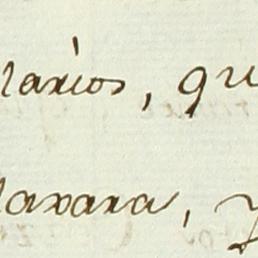 larios, qu
lavara, y